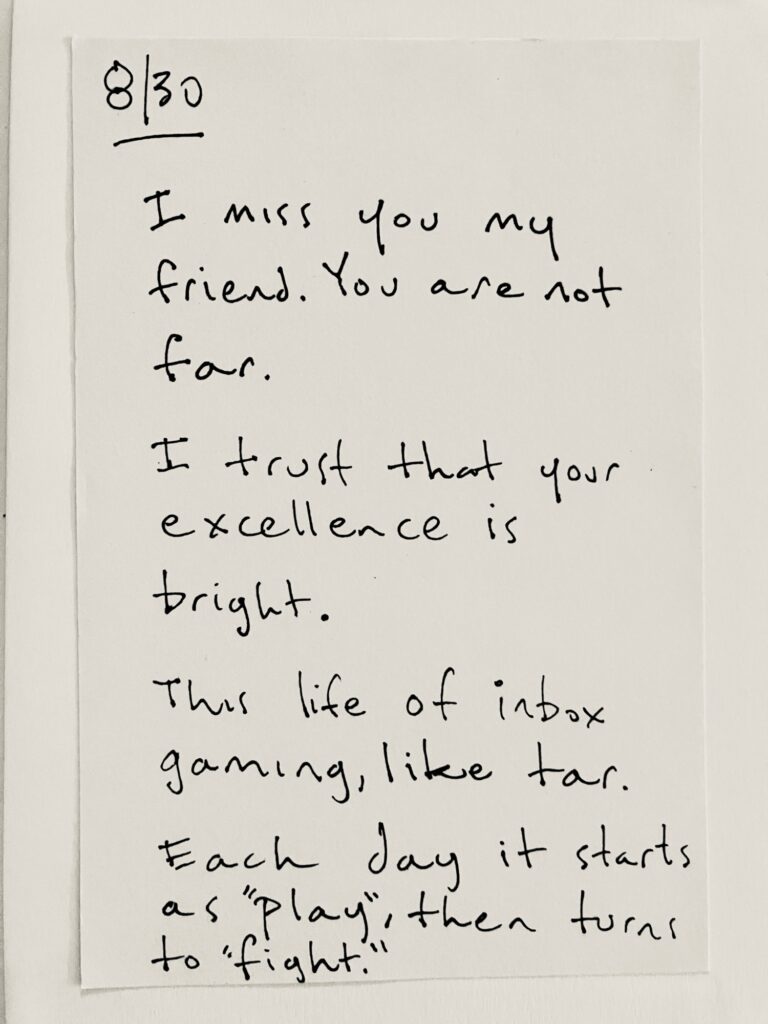 8/30
I miss you my
friend. You are not
far.
I trust that your
excellence is
bright.
This life of inbox
gaming, like tar.
Each day it starts
as "play", then turns
to "fight."